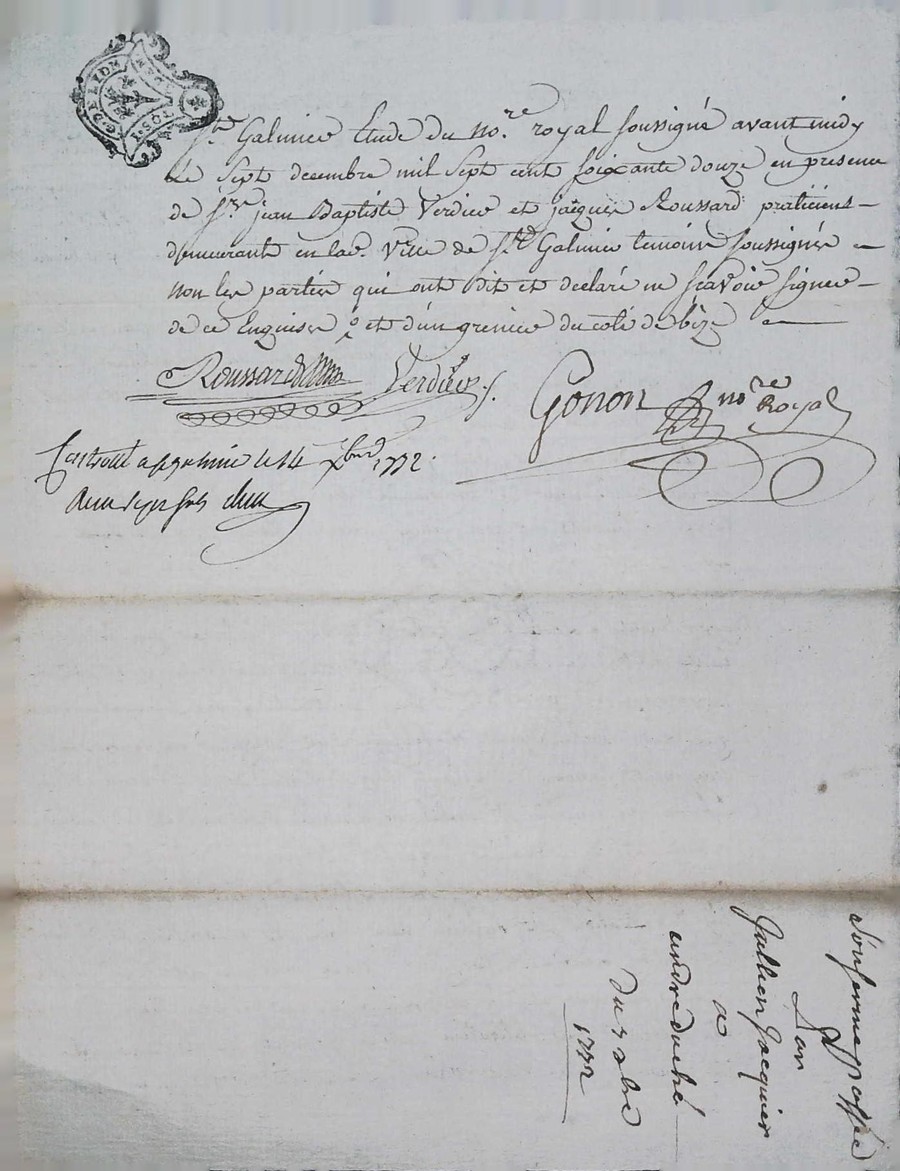 G. DE LYON
St. Galmier Etude du no.re royal soussigné avant midy
Le sept decembre mil sept cent soixante douze en presence
de Sr. jean Baptiste Verdier et jacques Roussard praticiens
demeurants en lad. Ville de St. Galmier temoins soussignés
non les parties qui ont dit et declaré ne scavoir signer
de ce Enquises et d'un grenier du coté de bize
Roussard Verdier
Gonon no.re Royal
le 14 xbre 1772.
passé
Par
jacquier
a
andre duché
du 7 xbre
1772